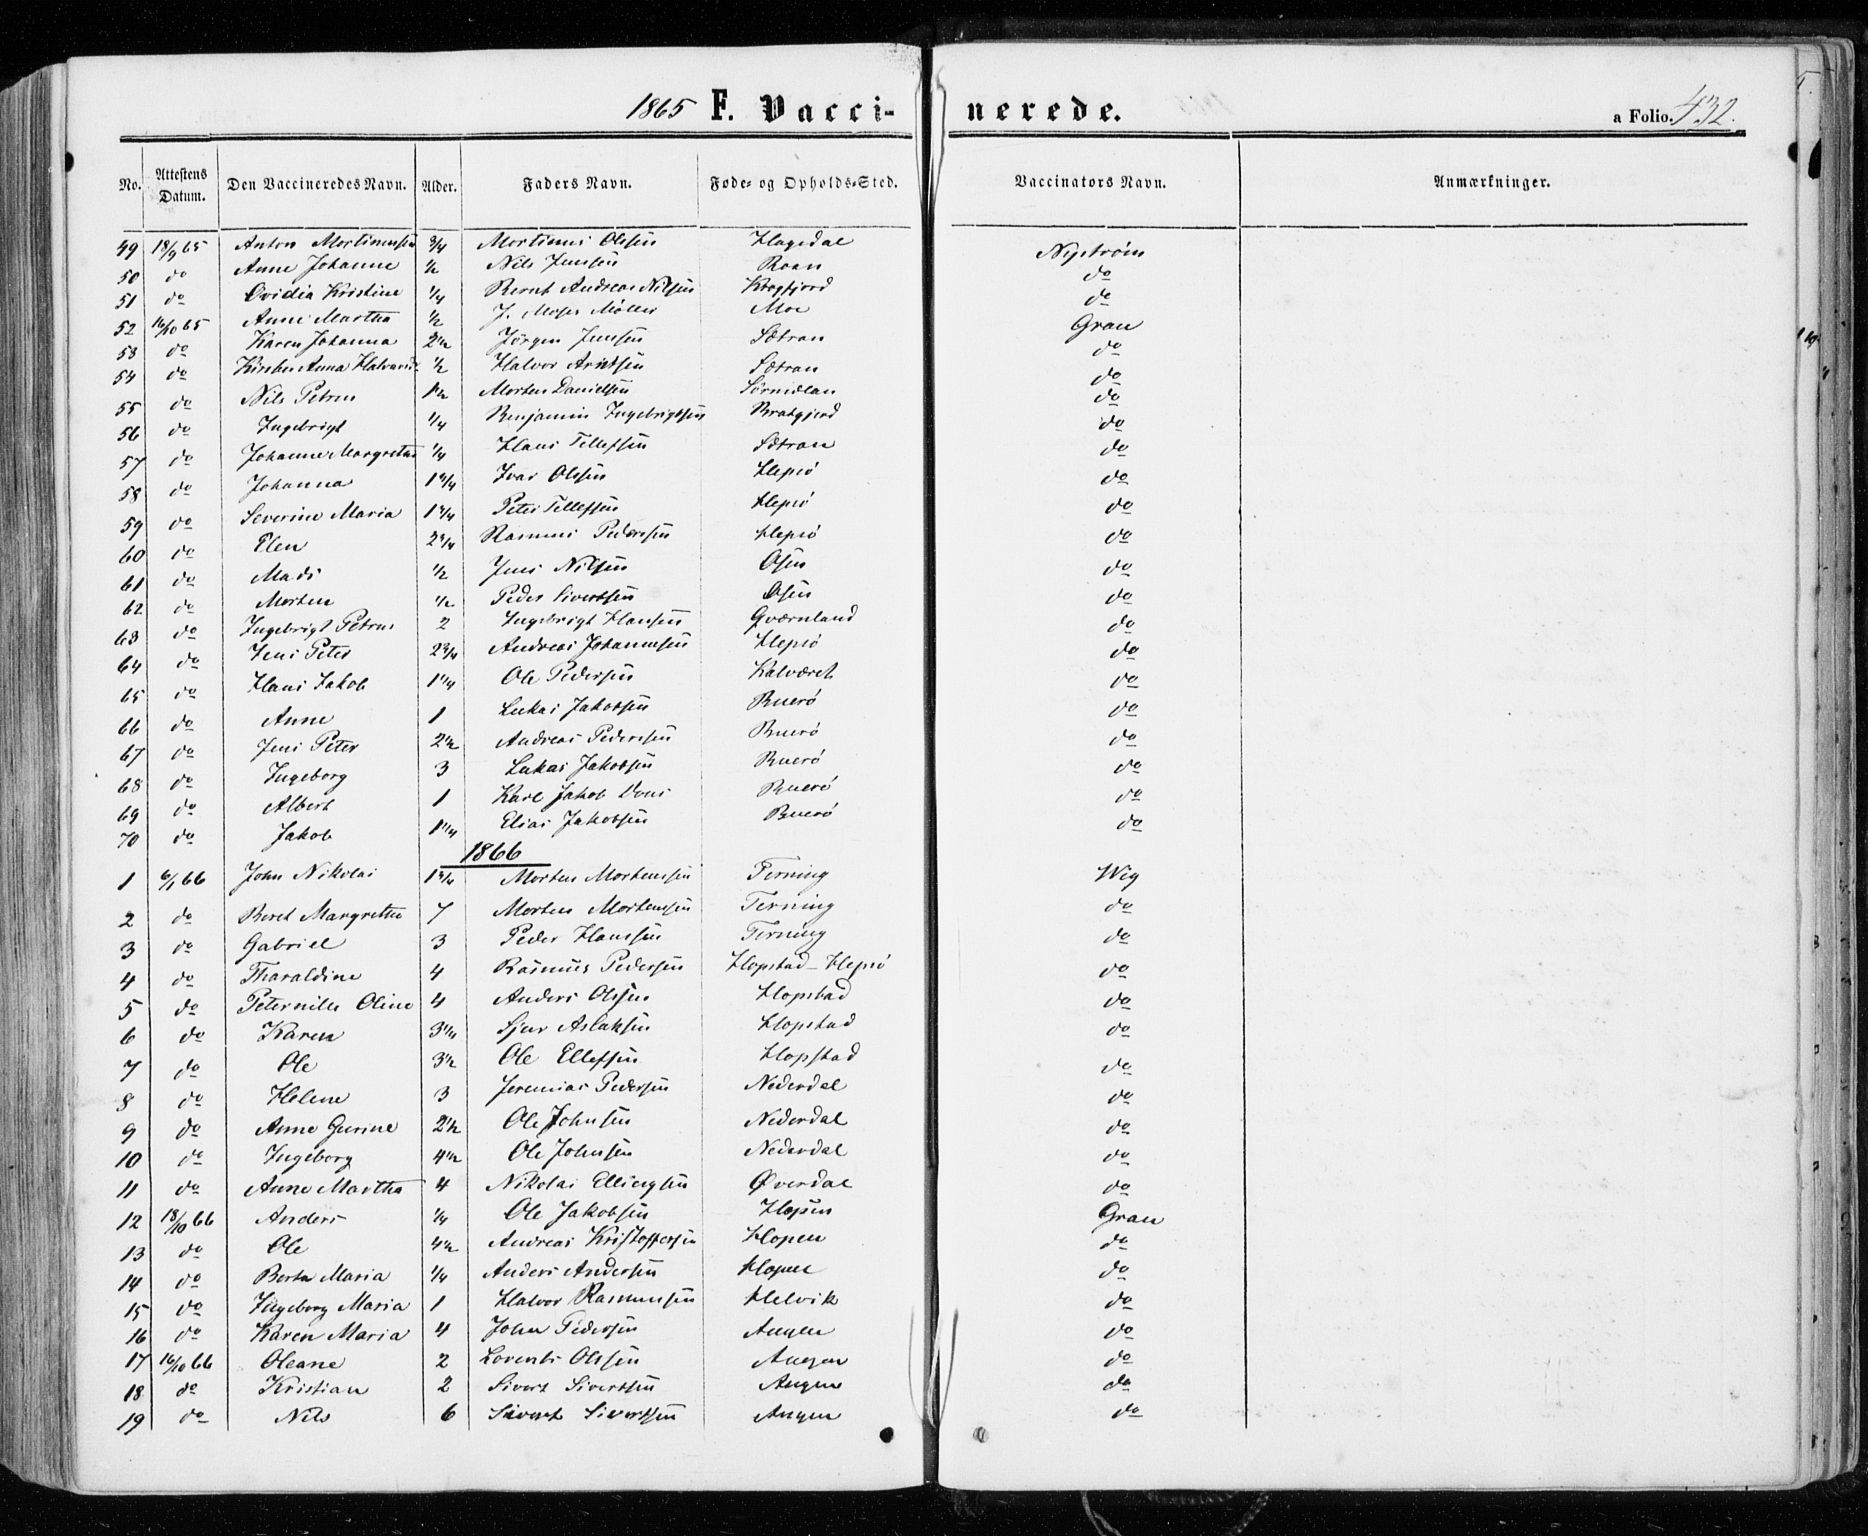 1865 F. Vaccinerede. a Folio. 432.
No. Attestens Datum. Den Vaccineredes Navn. Alder. Faders Navn. Føde- og Opholds-Sted. Vaccinators Navn. Anmærkninger.
49 18/9 65 Anton Mortinussen 3/4 Mortinus Olsen Hagedal Nystrøm
50 do Anne Johanne 1/2 Nils Jensen Roan do
51 do Ovidia Kristine 1/4 Bernt Andreas Nilsen do
52 16/10 65 Anne Martha 1/2 J. Moses Møller Moe Gran
53 do Karen Johanna 2 1/2 Jørgen Jensen Sætran do
54 do Kirsten Anna 1/2 Halvor Arntsen Sætran do
55 do Nils Petrus 1 1/2 Morten Danielsen do
56 do Ingebrigt 1/4 Benjamin Ingebrigtsen Bratgjerd do
57 do Johanne Margretha 1/4 Hans Tellefsen Sætran do
58 do Johanna 1 1/4 Ivar Olsen Hepsø do
59 do Severine Maria 1 3/4 Peter Tellefsen Hepsø do
60 do Elen 2 3/4 Rasmus Pedersen Hepsø do
61 do Mads 1/2 Jens Nilsen Osen do
62 do Morten 1/2 Peder Sivertsen Osen do
63 do Ingebrigt Petrus 2 Ingebrigt Hansen Qværnland do
64 do Jens Peter 2 3/4 Andreas Johannesen Hepsø do
65 do Hans Jakob 1 1/4 Ole Pedersen Kalværet do
66 do Anne 1 Lukas Jakobsen Buerø do
67 do Jens Peter 2 1/2 Andreas Pedersen Buerø do
68 do Ingeborg 3 Lukas Jakobsen Buerø do
69 do Albert 1 Karl Jakob Dons Buerø do
70 do Jakob 1 1/4 Elias Jakobsen Buerø do
1866
1 6/1 66 John Nikolai 1 3/4 Morten Mortensen Terning Wig
2 do Beret Margretha 7 Morten Mortensen Terning do
3 do Gabriel 3 Peder Hanssen Terning do
4 do Tharaldine 4 Rasmus Pedersen Hopstad - Hepsø do
5 do Peternille Oline 4 Anders Olsen Hopstad do
6 do Karen 3 1/2 Sjur Aslaksen Hopstad do
7 do Ole 3 1/2 Ole Ellefsen Hopstad do
8 do Helene 3 Jeremias Pedersen Nederdal do
9 do Anne Gurine 2 1/2 Ole Johnsen Nederdal do
10 do Ingeborg 4 1/2 Ole Johnsen Nederdal do
11 do Anne Martha 4 Nikolai Ellingsen Øverdal do
12 18/10 66 Anders 1/4 Ole Jakobsen Hopen Gran
13 do Ole 4 1/2 Andreas Kristoffersen Hopen do
14 do Berta Maria 1/4 Anders Andersen Hopen do
15 do Ingeborg Maria 1 Halvor Rasmussen Helvik do
16 do Karen Maria 4 John Pedersen Angen do
17 16/10 66 Oleane 2 Lorents Olsen Angen do
18 do Kristian 2 Sivert Sivertsen Angen do
19 do Nils 6 Sivert Sivertsen Angen do